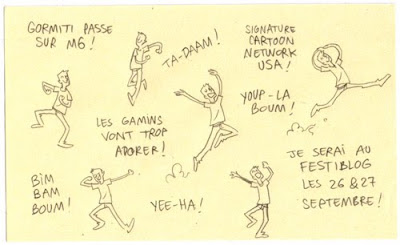 GORMITI PASSE
SUR M6 !
TA-DAAM !
SIGNATURE
CARTOON
NETWORK
USA !
YOUP-LA
BOUM !
LES GAMINS
VONT TROP
ADORER !
BIM
BAM
BOUM !
YEE-HA !
JE SERAI AU
FESTIBLOG
LES 26 & 27
SEPTEMBRE !